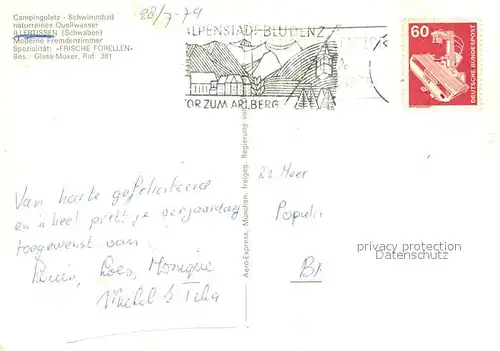 Campingplatz - Schwimmbad
naturreines Quellwasser
ILLERTISSEN (Schwaben)
Moderne Fremdenzimmer
Spezialität: »FRISCHE FORELLEN«
Bes.: Glass-Moser, Ruf: 361
28/7-79
ALPENSTADT BLUDENZ
TOR ZUM ARLBERG
60
DEUTSCHE BUNDESPOST
Aero-Express, München, freigeg. Regierung von
Van harte gefeliciteerd
en 'n heel prettige verjaardag
toegewenst van
Loes, Monique
Michel &
De Heer
privacy protection
Stampcenter AK
B